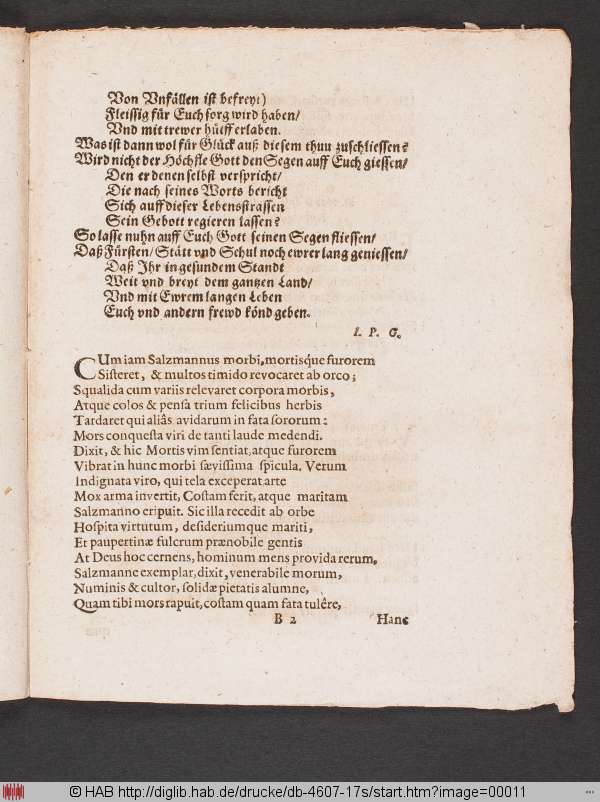 Von Vnfällen ist befreyt)
Fleissig für Euch sorg wird haben/
Vnd mit trewer hülff erlaben.
Was ist dann wol für Glück auß diesem thuu zuschliessen?
Wird nicht der Höchste Gott den Segen auff Euch giessen/
Den er denen selbst verspricht/
Die nach seines Worts bericht
Sich auff dieser Lebensstrassen
Sein Gebott regieren lassen?
So lasse nuhn auff Euch Gott seinen Segen fliessen/
Daß Fürsten/ Stätt vnd Schul noch ewrer lang geniessen/
Daß Ihr in gesundem Standt
Weit vnd breyt dem gantzen Land/
Vnd mit Ewrem langen Leben
Euch vnd andern frewd könd geben.
I. P. G.
CUm iam Salzmannus morbi, mortisque furorem
Sisteret, & multos timido revocaret ab orco;
Squalida cum variis relevaret corpora morbis,
Atque colos & pensa trium felicibus herbis
Tardaret qui aliâs avidarum in fata sororum:
Mors conquesta viri de tanti laude medendi.
Dixit, & hic Mortis vim sentiat, atque furorem
Vibrat in hunc morbi sævissima spicula. Verum
Indignata viro, qui tela exceperat arte
Mox arma invertit, Costam ferit, atque maritam
Salzmanno eripuit. Sic illa recedit ab orbe
Hospita virtutum, desideriumque mariti,
Et paupertinæ fulcrum prænobile gentis
At Deus hoc cernens, hominum mens provida rerum,
Salzmanne exemplar, dixit, venerabile morum,
Numinis & cultor, solidæ pietatis alumne,
Quam tibi mors rapuit, costam quam fata tulêre,
B 2 Hanc
© HAB http://diglib.hab.de/drucke/db-4607-17s/start.htm?image=00011